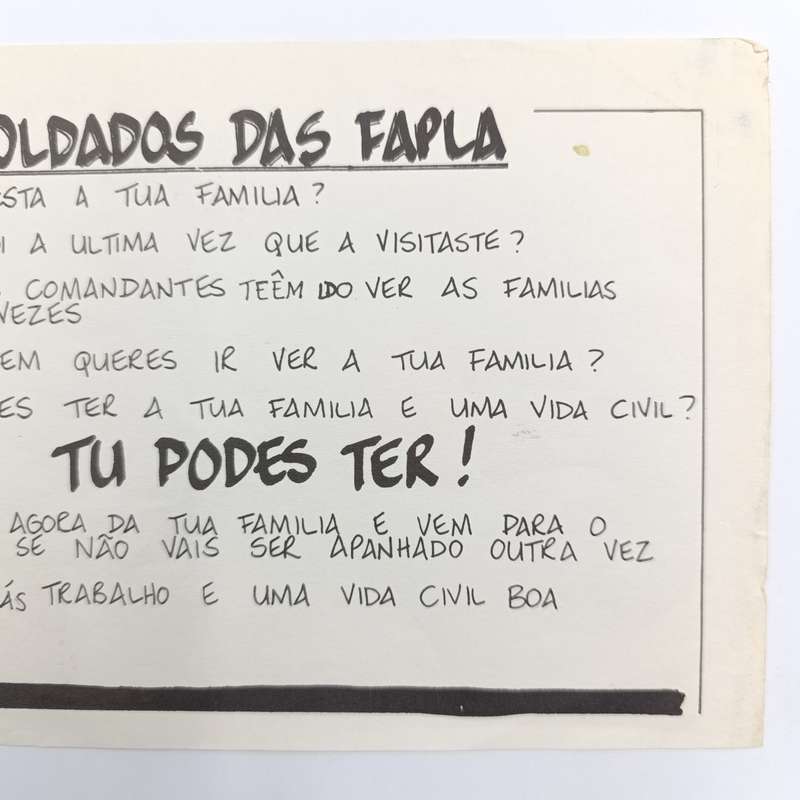 OLDADOS DAS FAPLA
STA A TUA FAMILIA?
I A ULTIMA VEZ QUE A VISITASTE?
COMANDANTES TEÊM IDO VER AS FAMILIAS
VEZES
EM QUERES IR VER A TUA FAMILIA?
ES TER A TUA FAMILIA E UMA VIDA CIVIL?
TU PODES TER!
AGORA DA TUA FAMILIA E VEM PARA O
SE NÃO VAIS SER APANHADO OUTRA VEZ
ÁS TRABALHO E UMA VIDA CIVIL BOA